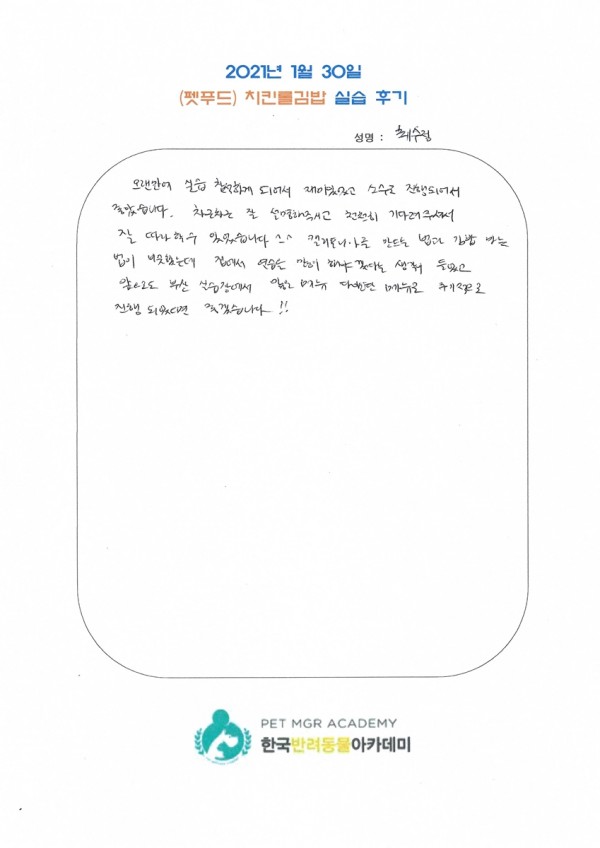 2021년 1월 30일
(펫푸드) 치킨롤김밥 실습 후기
성명 : 최수정
오랜만에 실습 참여하게 되어서 재미있었고 소수로 진행되어서
좋았습니다. 차근차근 잘 설명해주시고 천천히 기다려주셔서
잘 따라할수 있었습니다 ^^ 캘리포니아롤 만드는 법과 김밥 마는
법이 비슷했는데 집에서 연습을 많이 해야겠다는 생각이 들었고
앞으로도 부산 실습장에서 많은 메뉴 다양한 메뉴로 주기적으로
진행 되었으면 좋겠습니다 !!
PET MGR ACADEMY
한국반려동물아카데미